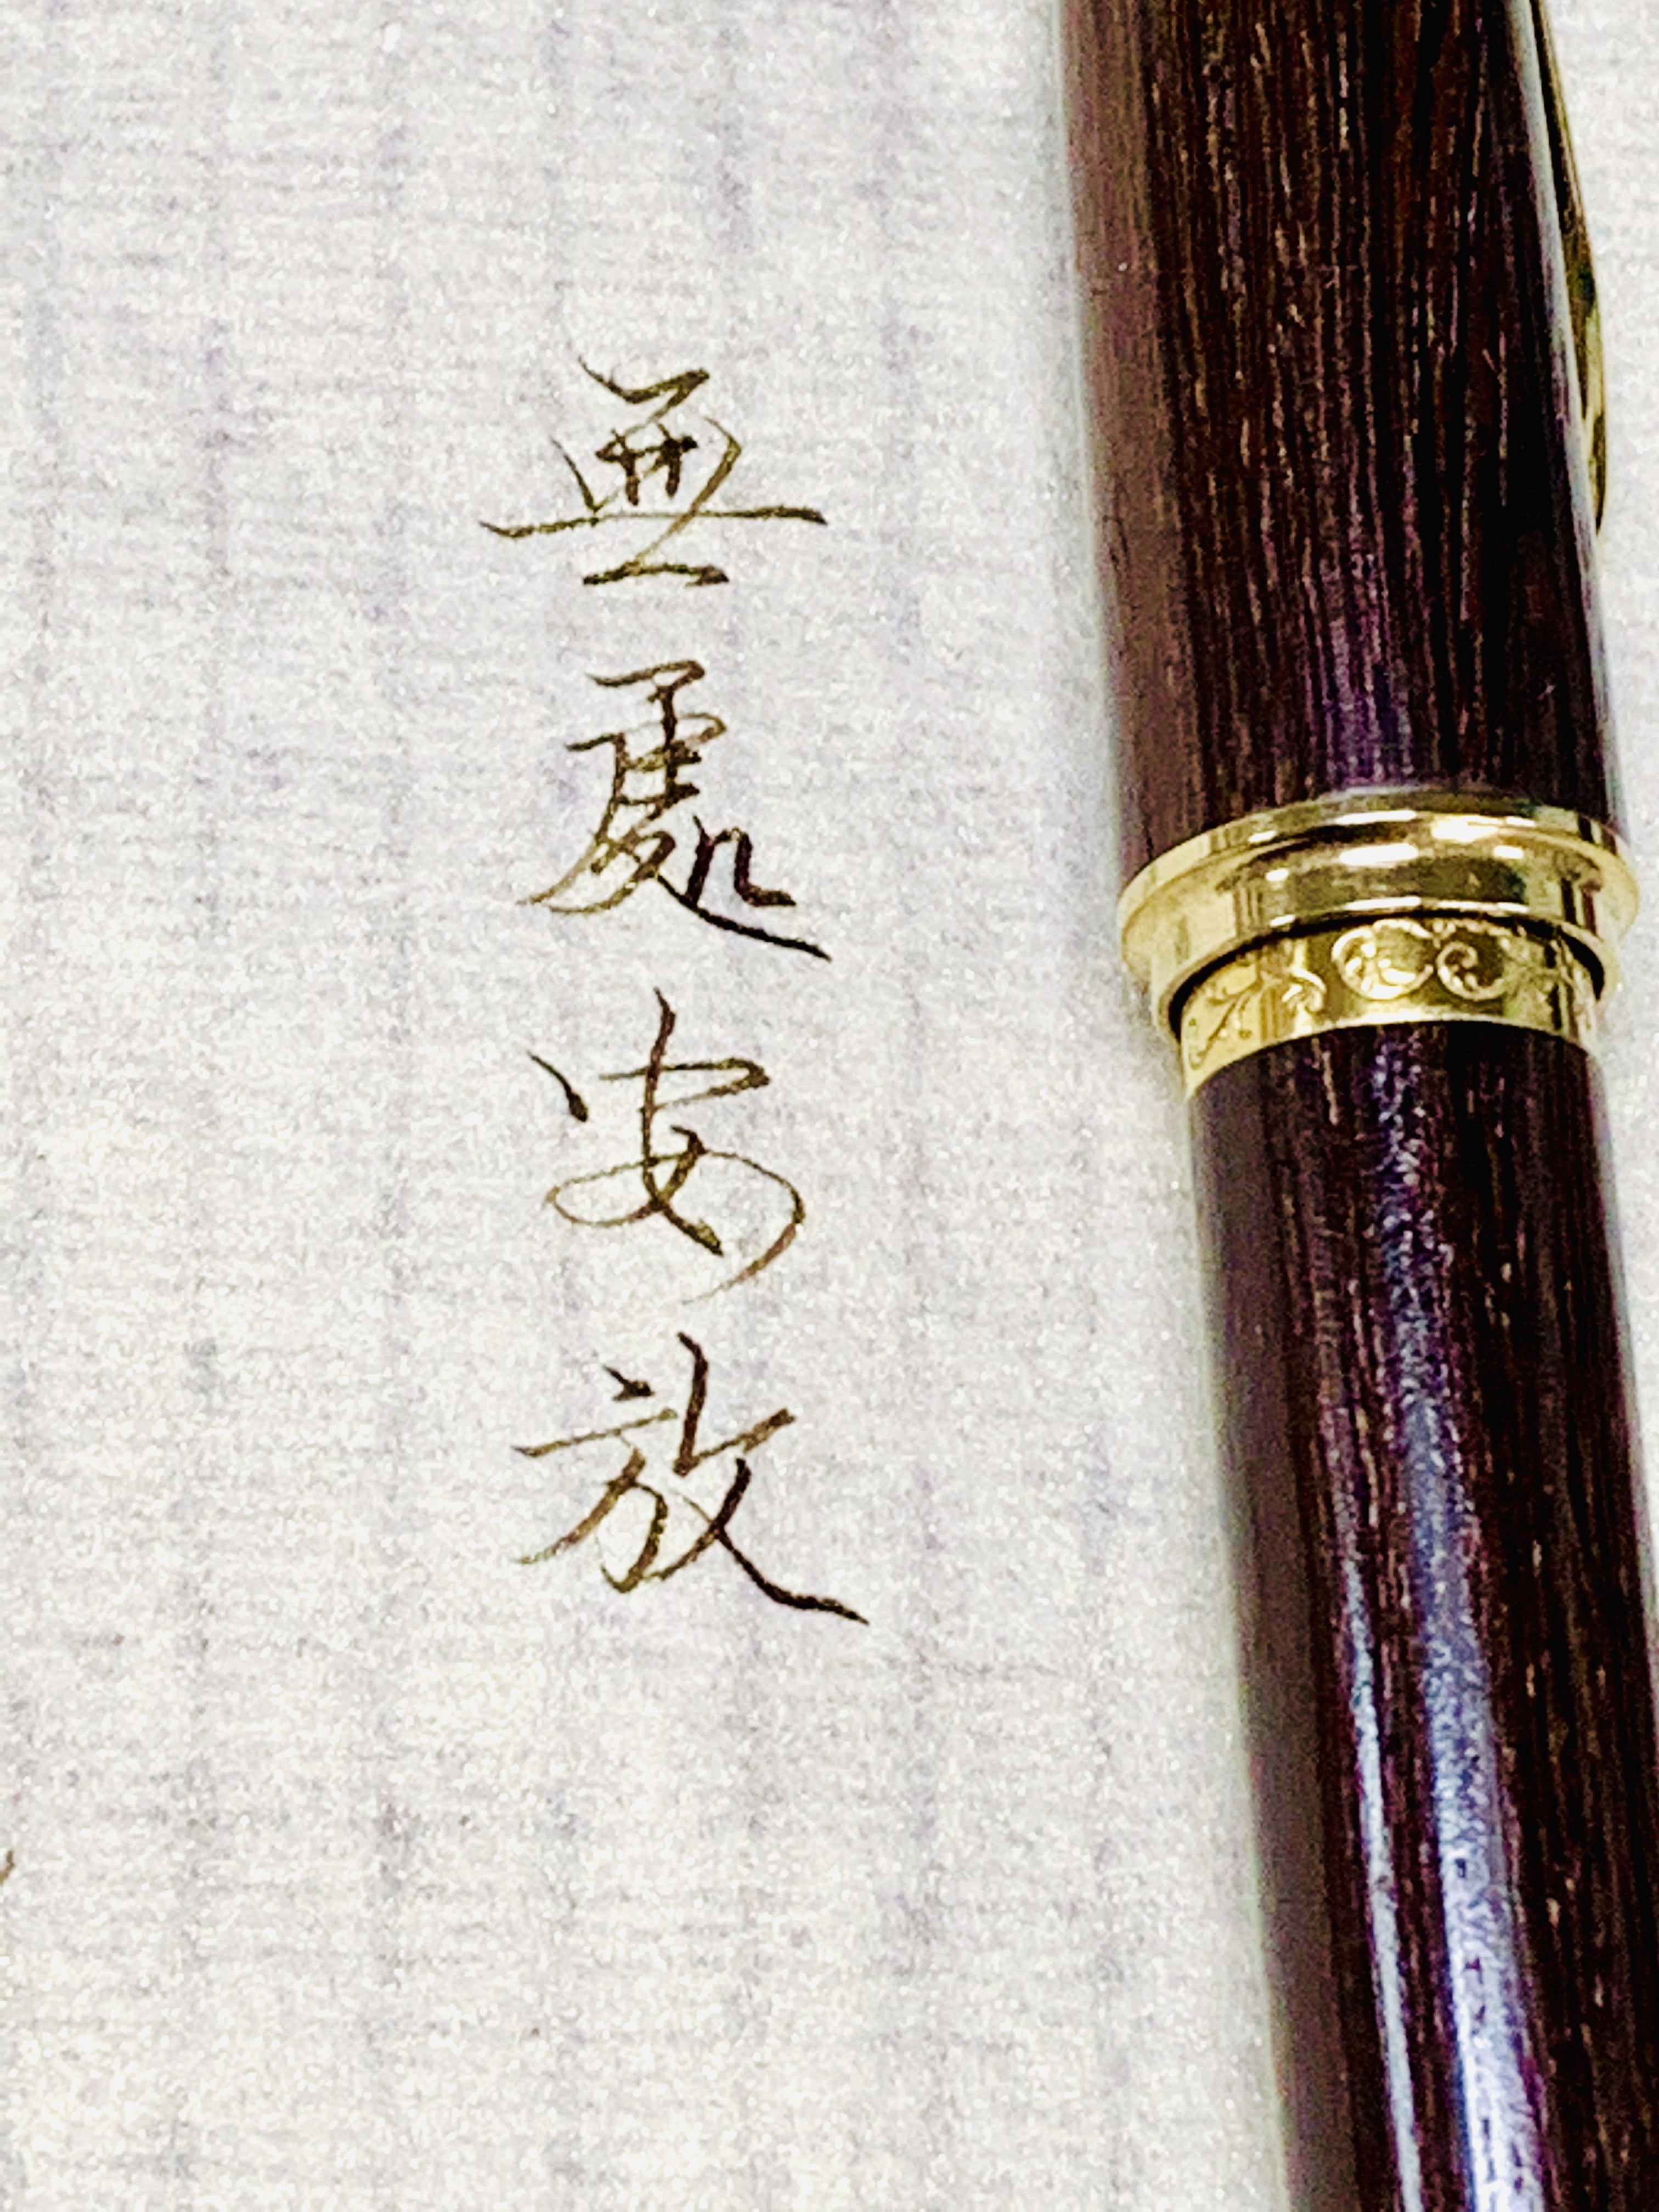 無處安放